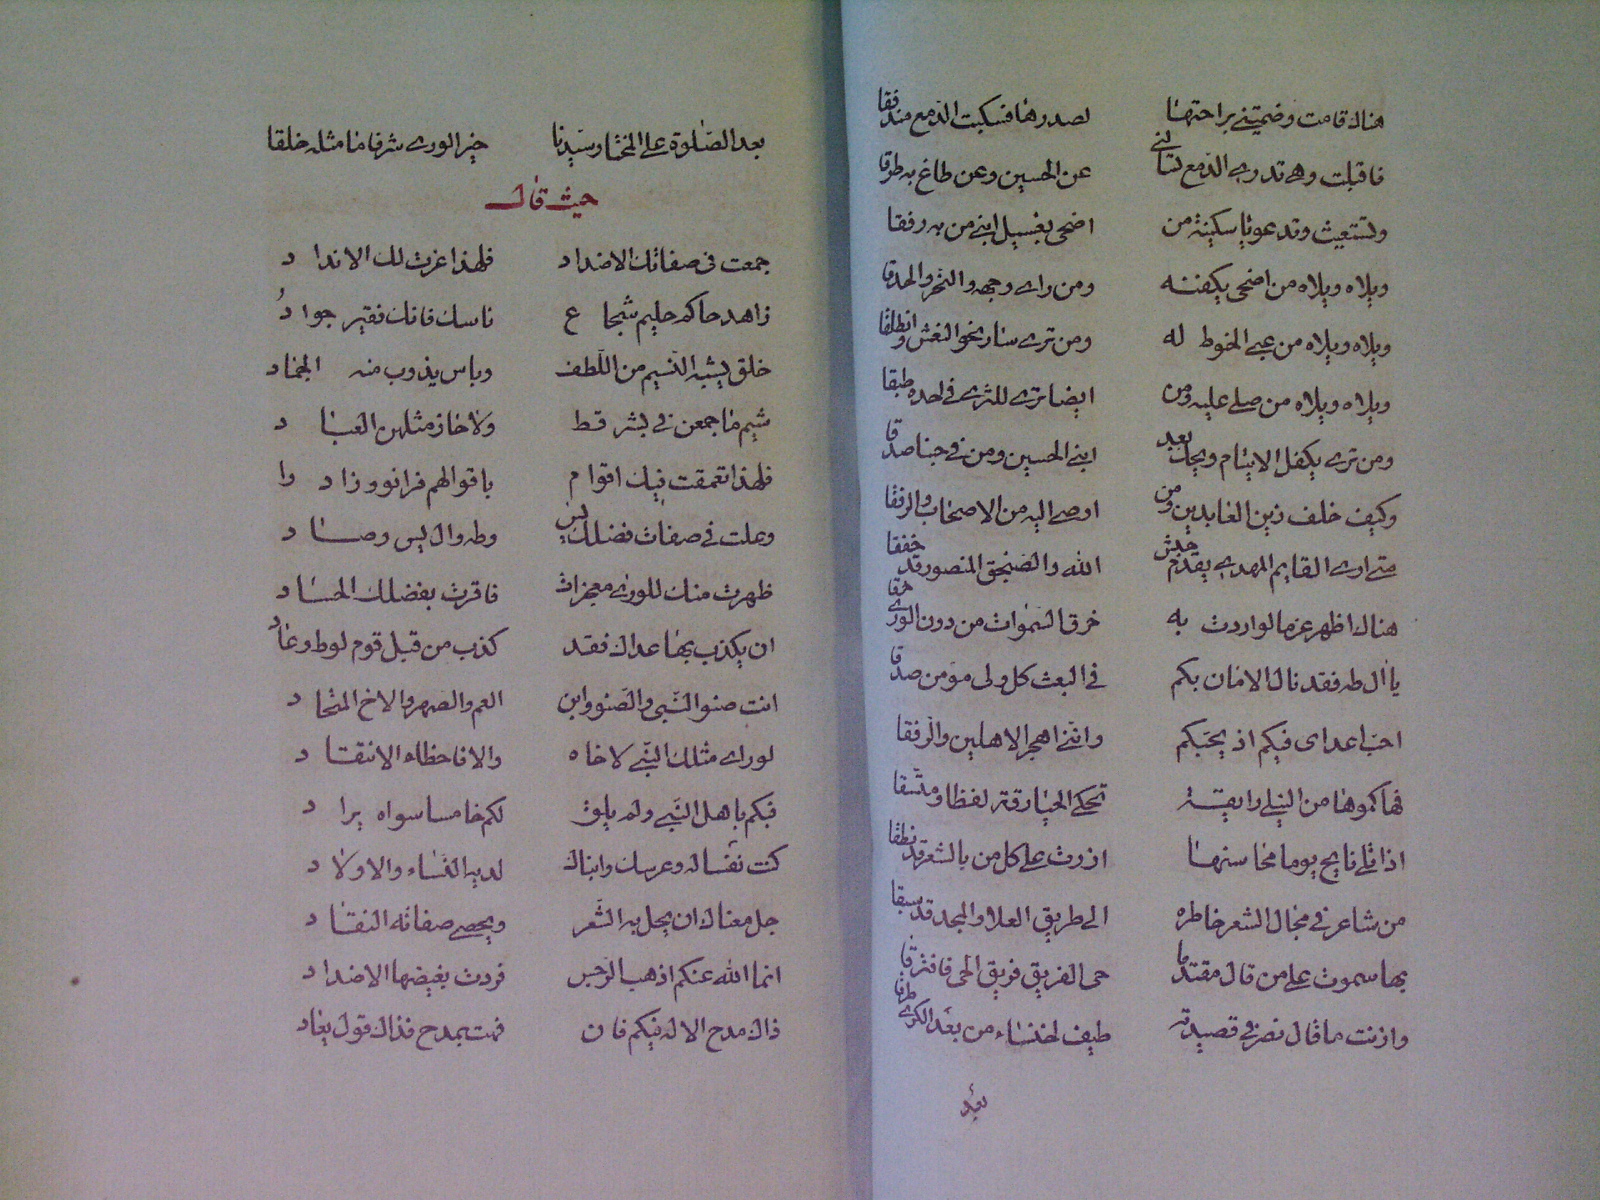 هناك قامت وضمتني براحتها لصدرها فسكبت الدمع مندفقا
فاقبلت وهي تدري الدمع تسالني عن الحسين وعن طاغ به طرقا
وتستغيث وتدعو يا سكينة من اضحى بغسيل ابني من به رفقا
ويلاه ويلاه من اضحى يكفنه ومن راى وجهه والنحر والحدقا
ويلاه ويلاه من عبى الحنوط له ومن ترى سار نحو النعش وانطلقا
ويلاه ويلاه من صلى عليه ومن ايضا ترى للثرى في لحده طبقا
ومن ترى يكفل الايتام ويحك بعد ابني الحسين ومن في حبنا صدقا
وكيف خلف زين العابدين ومن اوصى اليه من الاصحاب والرفقا
متى ارى القايم المهدي يقدم جيش الله والصنجق المنصور قد خفقا
هناك اظهر عزما لو اردت به خرق السموات من دون الورى خرقا
يا ال طه فقد نال الامان بكم في البعث كل ولى مؤمن صدقا
احب اعداى فيكم اذ يحبكم وانني اهجر الاهلين والرفقا
فهاكموها من النيلي رايقة تحكي الحيا رقة لفظا ومتسقا
اذا تلى نايح يوما محاسنها ازرت على كل من بالشعر قد نطقا
من شاعر في مجال الشعر خاطره الى طريق العلا والمجد قد سبقا
بها سموت على من قال مقتدما حى الفريق فريق الحى فافترقا
وازنت ما قال نصر في قصيدته طيف لخنساء من بعد الكرى طرقا
بعد
بعد الصلوة على المختار سيدنا خير الورى شرفا ما مثله خلقا
حيث قال
جمعت فى صفاتك الاضداد فلهذا عزت لك الانداد
زاهد حاكم حليم شجاع ناسك فاتك فقير جواد
خلق يشبه النسيم من اللطف وباس يذوب منه الجماد
شيم ما جمعن في بشر قط ولا حاز مثلهن العباد
فلهذا تعمقت فيك اقوام باقوالهم فرانوو زادوا
وعلت في صفات فضلك يس وطه وال يس وصاد
ظهرت منك للورى معجزات فاقرت بفضلك الحساد
ان يكذب بها عداك فقد كذب من قبل قوم لوط وعاد
انت صنو النبى والصنو وابن العم والصهر والاخ المنجاد
لو راى مثلك النبي لاخاه والا فاخطاء الانتقاد
فبكم باهل النبي ولم يلق لكم خامسا سواه يراد
كنت نفسا له وعرسك وابناك لديه النساء والاولاد
جل معناك ان يحل به الشعر ويحصى صفاته النقاد
انما الله عنكم اذهب الرجس فردت بغيضها الاضداد
ذاك مدح الاله فيكم فان فهت بمدح فذاك قول يعاد